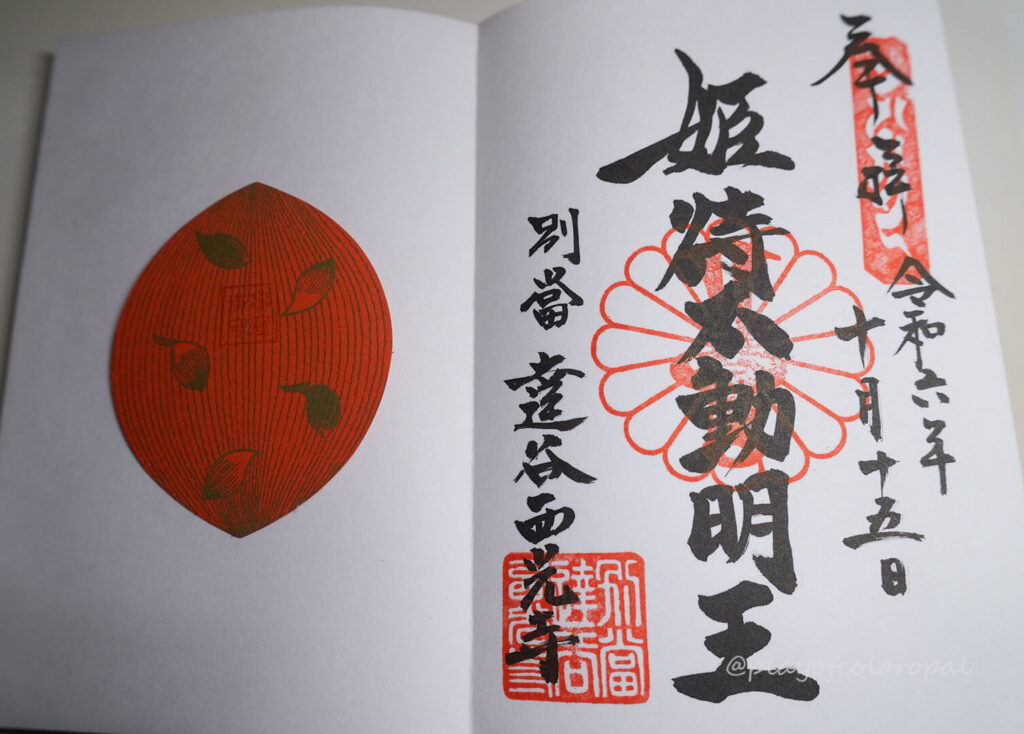 奉拝
令和六年
十月十五日
姫待不動明王
別當 達谷西光寺
別當
達谷
@playofcoloropal